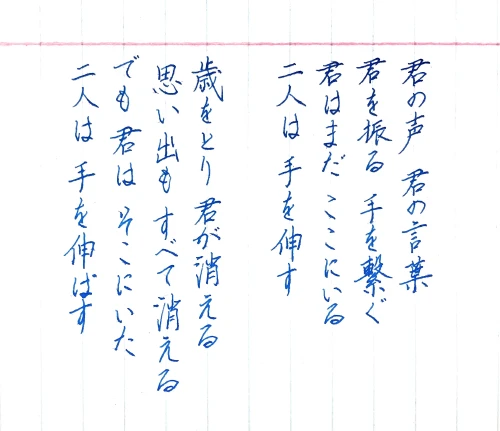 君の声 君の言葉
君を振る 手を繋ぐ
君はまだ ここにいる
二人は 手を伸す
歳をとり 君が消える
思い出も すべて消える
でも 君は そこにいた
二人は 手を伸ばす